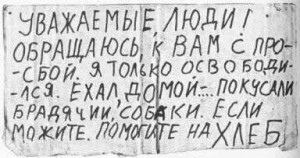 УВАЖАЕМЫЕ ЛЮДИ!
ОБРАЩАЮСЬ К ВАМ С ПРО-
СБОЙ. Я ТОЛЬКО ОСВОБОДИ-
ЛСЯ. ЕХАЛ ДОМОЙ... ПОКУСАЛИ
БРАДЯЧИИ, СОБАКИ. ЕСЛИ
МОЖИТЕ. ПОМОГИТЕ НА ХЛЕБ.